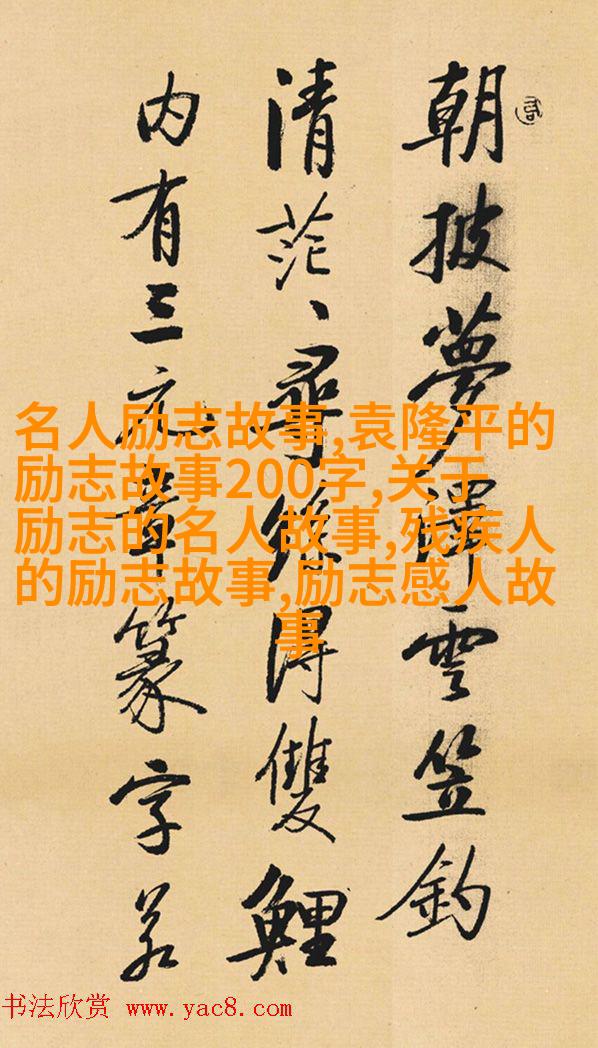 朝披夢澤雲笠釣
清茫、尋絲得雙鯉
内有三元章篆字若
名人励志故事,袁隆平的
励志故事200字,关于
励志的名人故事,残疾人
的励志故事,励志感人故
事
书法欣赏 www.yac8.com